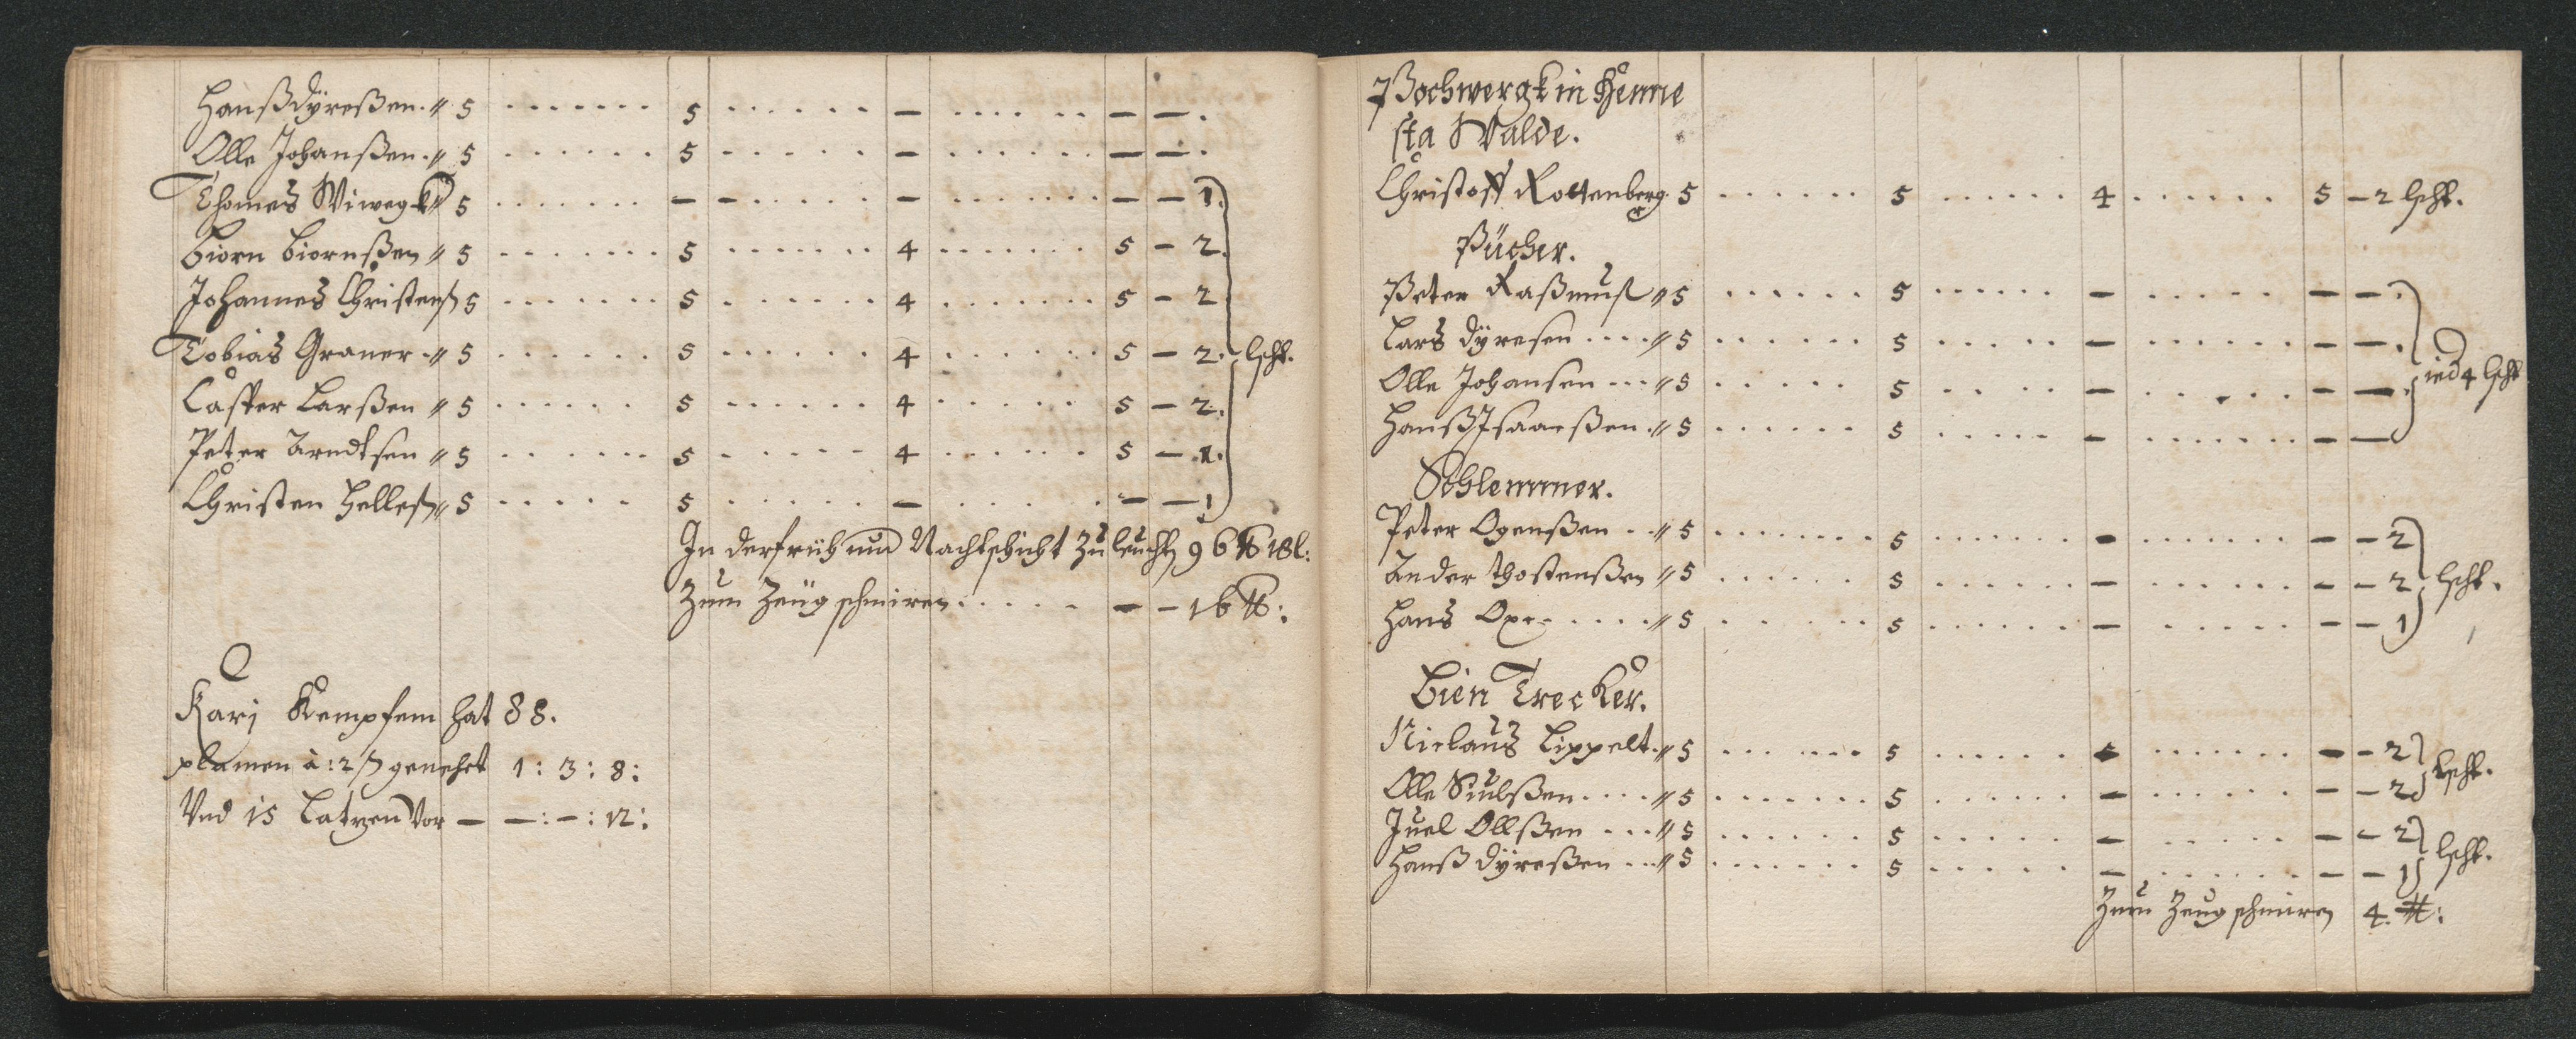 Hanß Dÿreßen. 〃 5 ....... 5 ...... – ...... – – .
Olle Johanßen. 〃 5 ...... 5 ..... – ...... – – .
Thomes Wiwegk 〃 5 ....... – – ...... – ....... – – 1.
Biorn Biornßen 〃 5 ....... 5 ....... 4 ....... 5 – 2.
Johannes Christens 5 ....... 5 ....... 4 ....... 5 – 2
Tobias Graner 〃 5 ...... 5 ...... 4 ...... 5 – 2. lscht.
Casper Larßen 〃 5 ...... 5 ...... 4 ...... 5 – 2.
Peter Arndtsen 〃 5 ...... 5 ...... 4 ...... 5 – 1.
Christen Helleß 〃 5 ..... 5 ...... – ...... – – 1
In der früh und Nachtschicht zu leucht 96 ℔ 18 l:
Zum Zeug schmiren ..... – – 16 ℔:
Kari Kempfem hat 88.
plamen à: 2 ß genehet 1 : 3 : 8 :
Vnd 15 Latzen vor – – : – : 12 :
Pochwergk in Henne
sta Walde.
Christoff Rottenberg. 5 ...... 5 ...... 4 ...... 5 – 2 lscht.
Pücher.
Peter Raßmuß 〃 5 ...... 5 ...... – ..... – – .
Lars Dÿresen .... 〃 5 ...... 5 ..... – ...... – – .
Olle Johansen ... 〃 5 ..... 5 .... – ...... – – . ied 4 lscht
Hanß Isaacßen. 〃 5 ...... 5 ..... – ....... – –
Schlemmer.
Peter Ogenßen .. 〃 5 ........ 5 ...... – ....... – – 2
Ander Thostenßen 〃 5 ...... 5 ...... – ...... – – 2 lscht.
Hans Oxe .... 〃 5 ...... 5 ...... – ..... – – 1
Bien Trecker.
Niclaus Lippelt. 〃 5 ...... 5 ...... – ....... – – 2
Olle Siulßen .... 〃 5 ....... 5 ...... – ...... – – 2 lscht.
Juel Ollßen ... 〃 5 ...... 5 ..... – ..... – – 2
Hanß Dÿreßen ... 〃 5 ....... 5 ..... – ...... – – 1 lscht.
Zum Zeug schmiren 4. ℔: